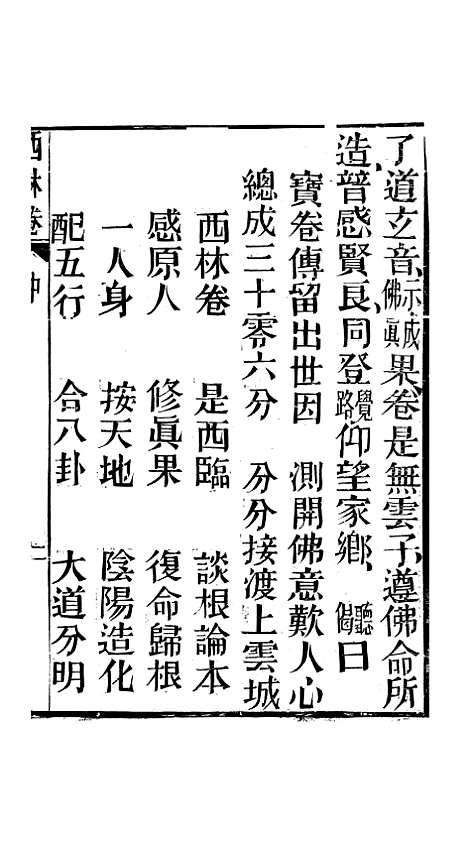 了道玄音示成佛眞果卷是無雲子遵佛命所
造普感賢良同登覺路仰望家鄉聽偈曰
寶卷傳留出世因　測開佛意歎人心
總成三十零六分　分分接渡上雲城
西林卷　是西臨　談根論本
感原人　修眞果　復命歸根
一人身　按天地　陰陽造化
配五行　合八卦　大道分明
西林卷　中